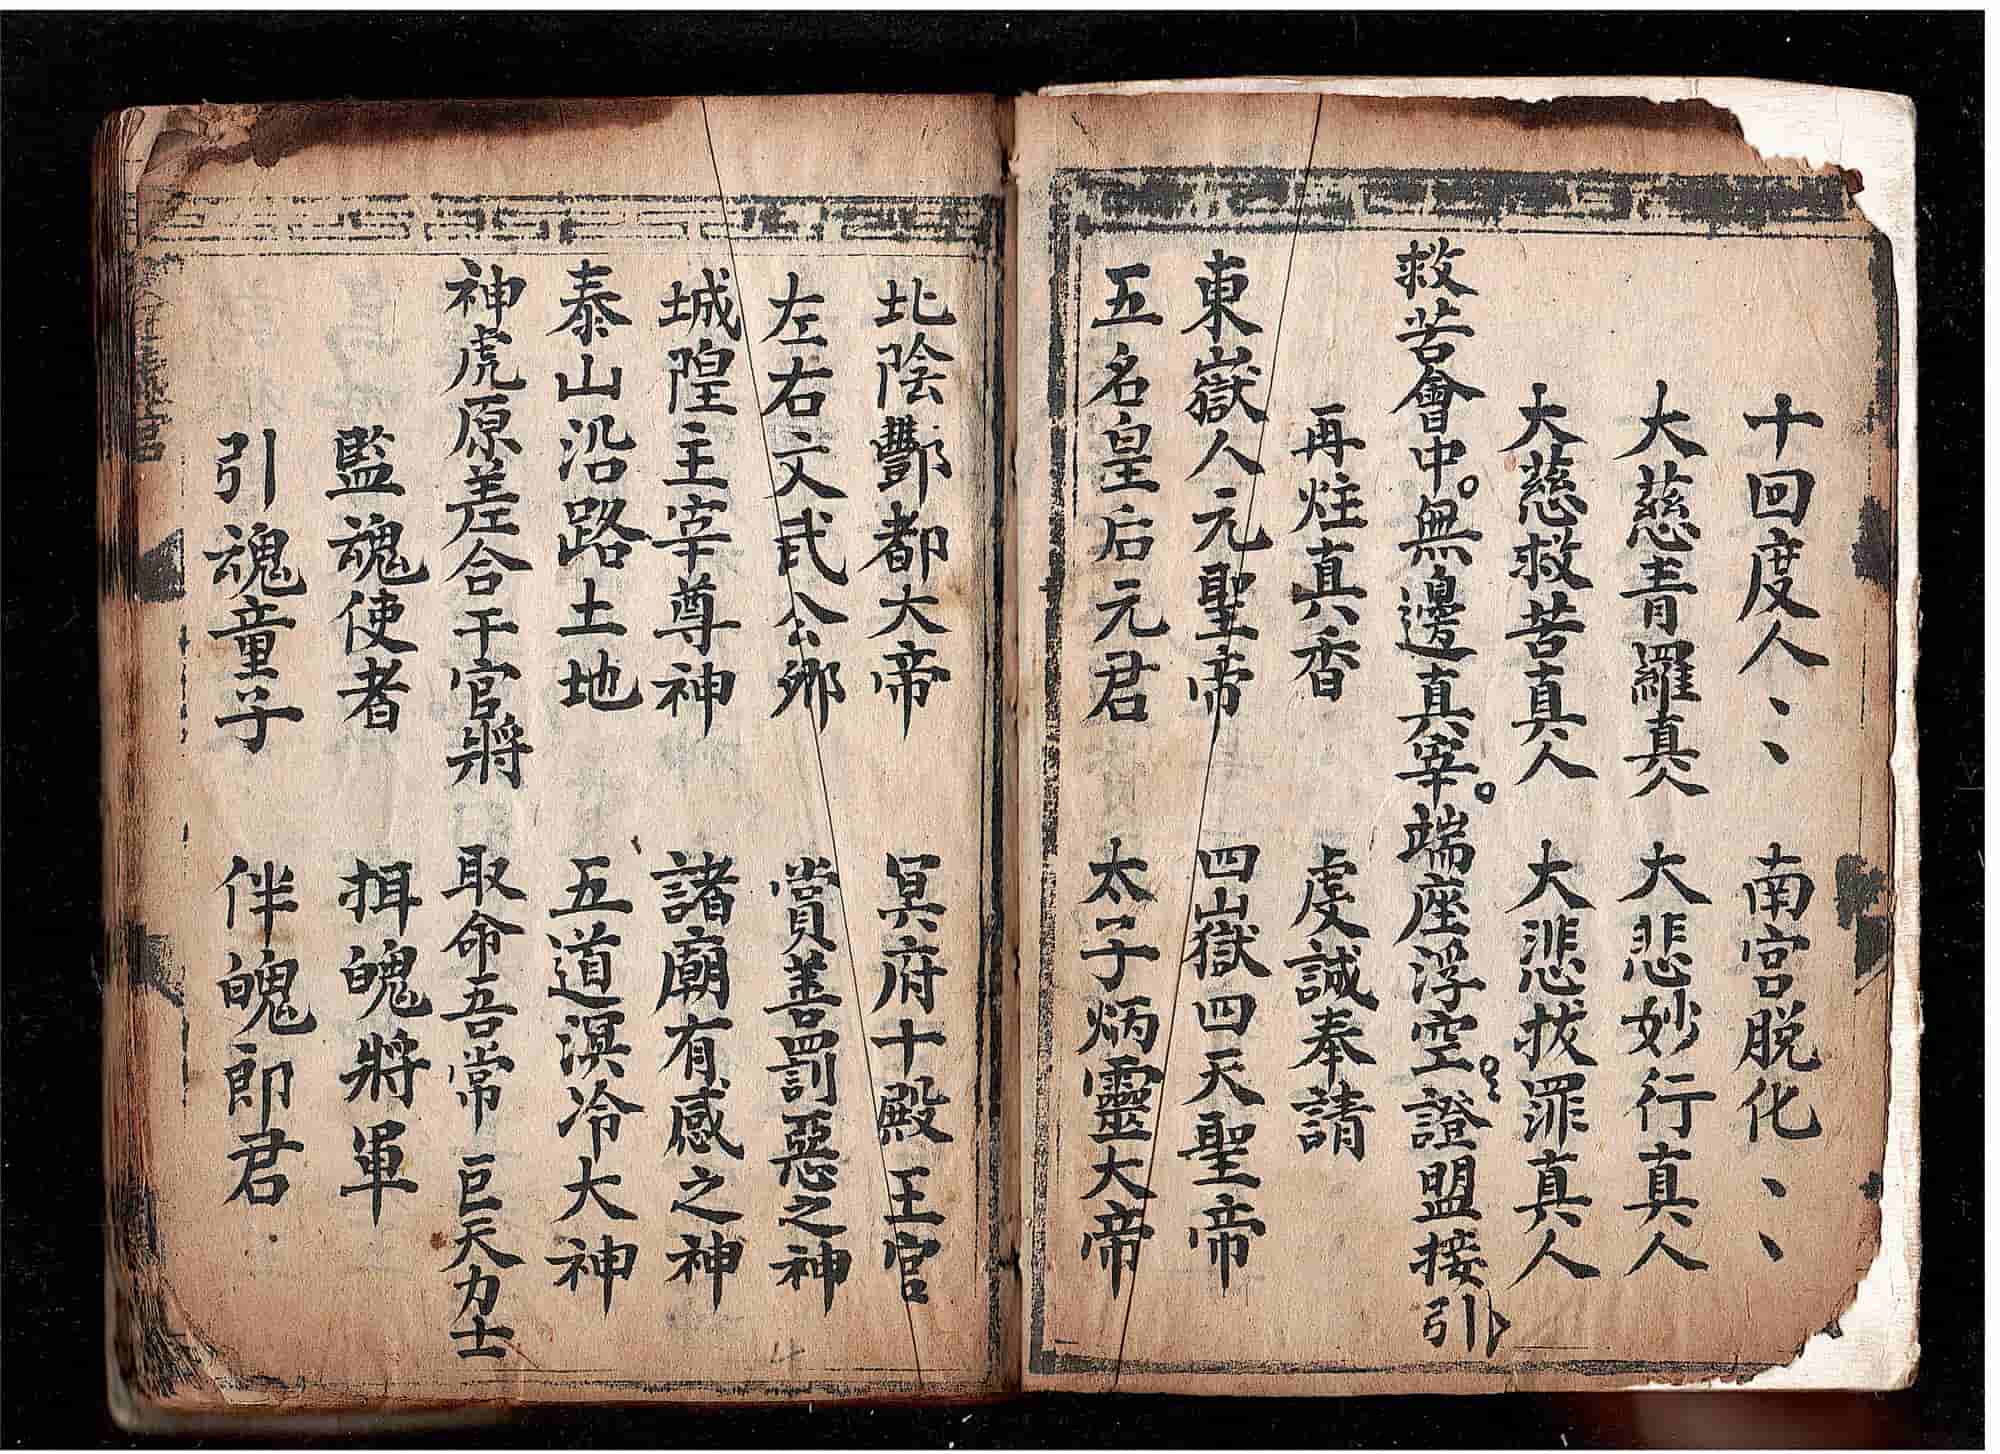 十回度人、、 南宮脱化、、
大慈青羅真人 大悲妙行真人
大慈救苦真人 大悲拔罪真人
救苦會中。無邊真宰。端座浮空。證盟接引
再炷真香 虔誠奉請
東嶽人元聖帝 四嶽四天聖帝
五名皇后元君 太子炳靈大帝
北陰酆都大帝 冥府十殿王官
左右文武公卿 賞善罰惡之神
城隍主宰尊神 諸廟有感之神
泰山沿路土地 五道溟冷大神
神虎原差合干官將 取命吾常巨天力士
監魂使者 揖魄將軍
引魂童子 伴魄郎君